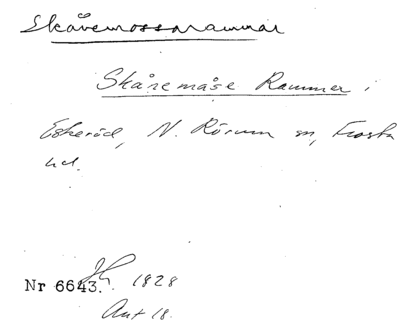 Skåremossarammar
Skåremåse Rammer,
Eskeröd, N. Rörum sn, Frosta
hd.
Nr 6643. Jh 1828
Ant 18.